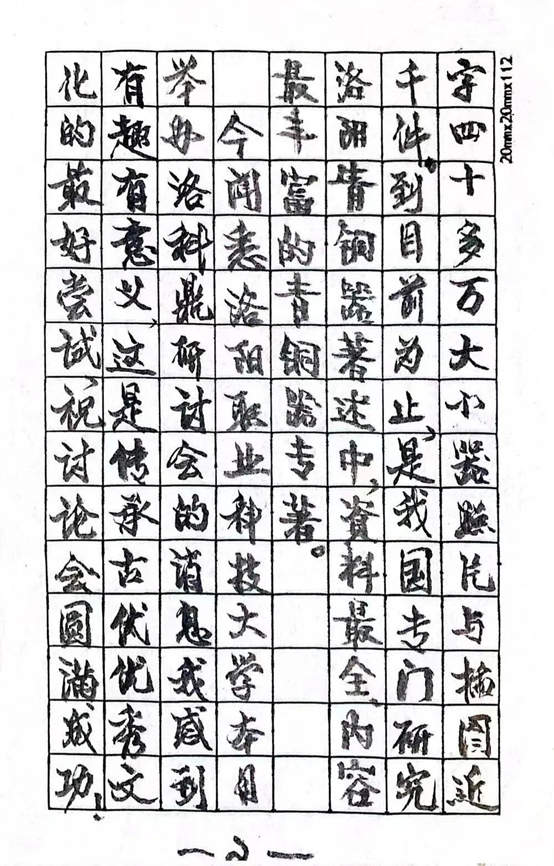 字四十多万大小器照片与插图近
千件。到目前为止,是我国专门研究
洛阳青铜器著述中,资料最全、内容
最丰富的青铜器专著。
今闻悉洛阳职业科技大学本月
举办洛科鼎研讨会的消息我感到
有趣有意义,这是传承古代优秀文
化的最好尝试,祝讨论会圆满成功!
—2—
20mmx20mmx112